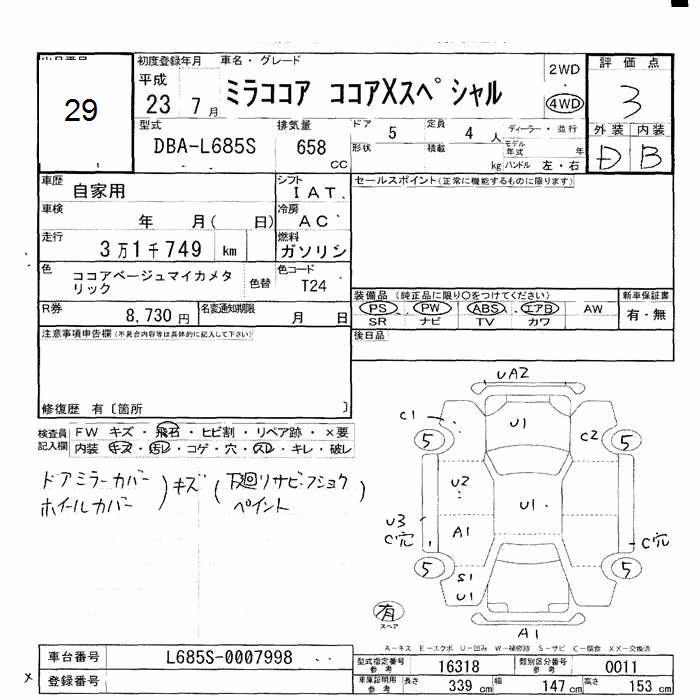 初度登録年月 車名・グレード
評価点
平成 23 7月
ミラココア ココアXスペシャル
2WD
4WD
3
29
型式 排気量 ドア 5 定員 4人 ディーラー・並行
外装 内装
DBA-L685S 658 CC
形状 積載 kg モデル年式 年
ハンドル 左・右
D B
車歴 自家用
シフト IAT
セールスポイント(正常に機能するものに限ります)
車検 年 月( 日)
冷房 AC
走行 3万1千749 km
燃料 ガソリン
色 ココアベージュマイカメタリック
色替
色コード T24
装備品(純正品に限り○をつけてください)
新車保証書
R券 8,730円
名変通知期限 月 日
PS PW ABS エアB AW
有・無
SR ナビ TV カワ
注意事項申告欄(不具合内容等は具体的に記入して下さい)
後日品
修復歴 有〔箇所 〕
検査員記入欄
FW キズ・飛石・ヒビ割・リペア跡・×要
内装 キズ・汚レ・コゲ・穴・スレ・キレ・破レ
ドアミラーカバー
ホイールカバー
)キズ
(下廻リサビ・フショク
ペイント)
UA2
C1
U1
5
C2
5
U2
U1
U3
C穴
A1
C穴
5
S1
U1
5
有
スペア
A1
A-キズ E-エクボ U-凹み W-補修跡 S-サビ C-腐食 XX-交換済
車台番号 L685S-0007998
型式指定番号 参考 16318
類別区分番号 参考 0011
登録番号
車庫証明用 参考 長さ 339 cm 幅 147 cm 高さ 153 cm